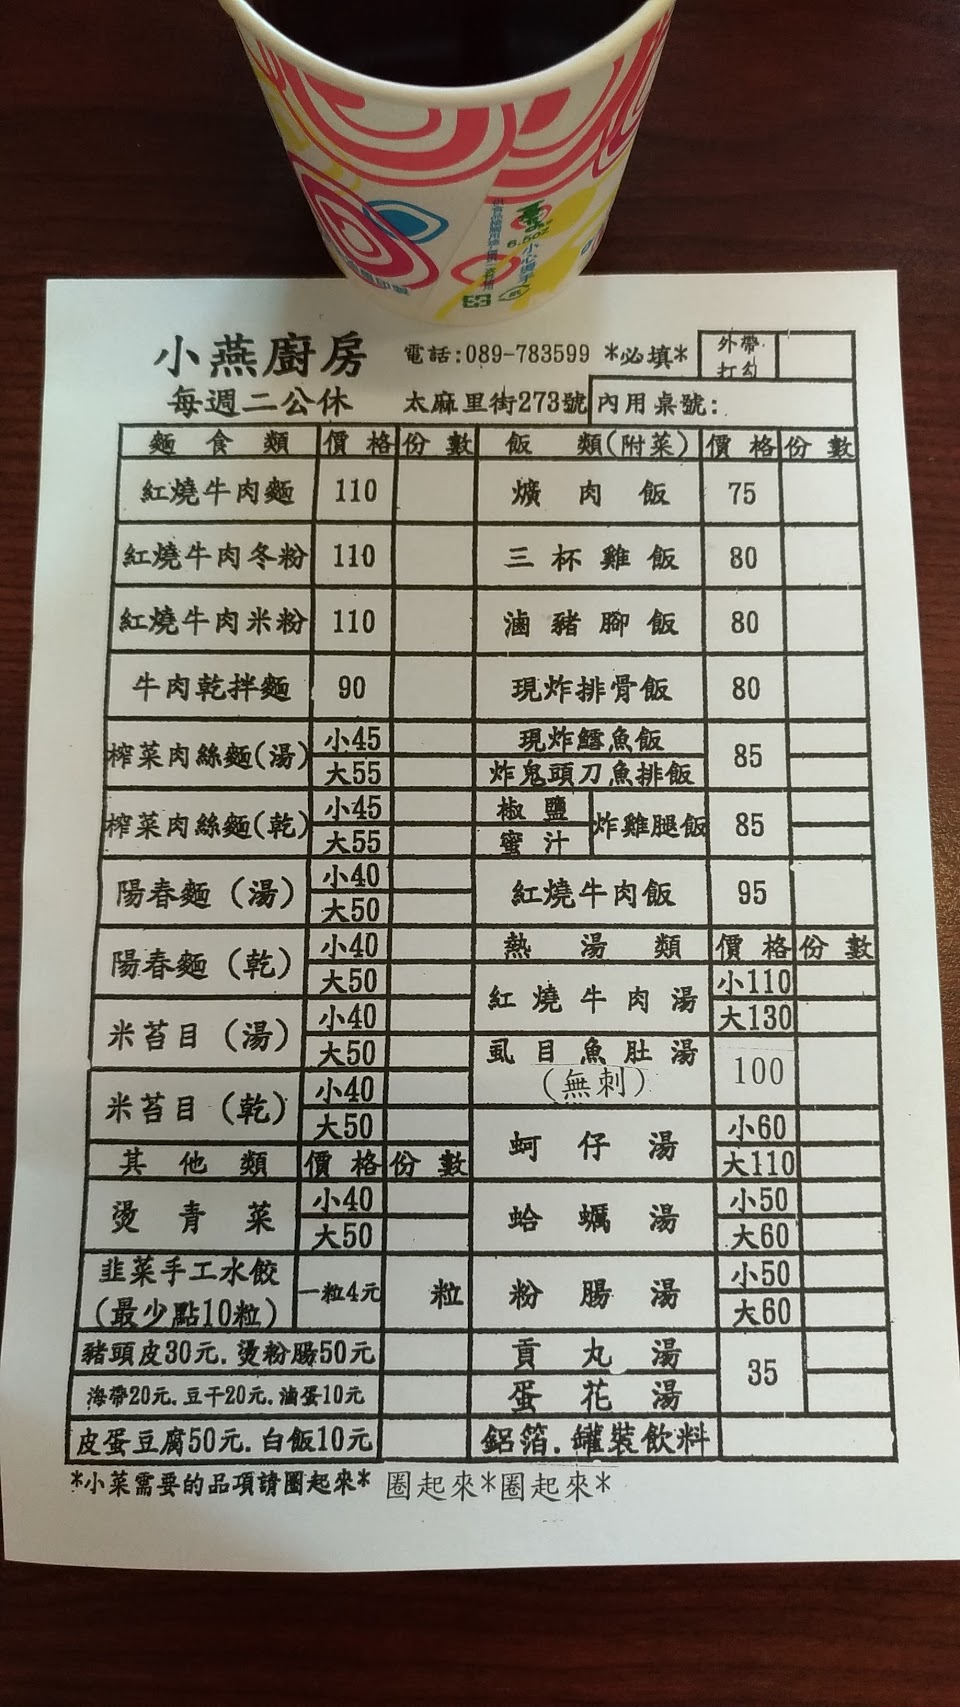 6.5oz
小心燙手
小燕廚房 電話:089-783599 *必填* 外帶打勾
每週二公休 太麻里街273號 內用桌號:
麵食類 價格 份數 飯類(附菜) 價格 份數
紅燒牛肉麵 110 爌肉飯 75
紅燒牛肉冬粉 110 三杯雞飯 80
紅燒牛肉米粉 110 滷豬腳飯 80
牛肉乾拌麵 90 現炸排骨飯 80
榨菜肉絲麵(湯) 小45 大55 現炸鱈魚飯 炸鬼頭刀魚排飯 85
榨菜肉絲麵(乾) 小45 大55 椒鹽 蜜汁 炸雞腿飯 85
陽春麵(湯) 小40 大50 紅燒牛肉飯 95
陽春麵(乾) 小40 大50 熱湯類 價格 份數
米苔目(湯) 小40 大50 紅燒牛肉湯 小110 大130
米苔目(乾) 小40 大50 虱目魚肚湯(無刺) 100
其他類 價格 份數 蚵仔湯 小60 大110
燙青菜 小40 大50 蛤蠣湯 小50 大60
韭菜手工水餃(最少點10粒) 一粒4元 粒 粉腸湯 小50 大60
豬頭皮30元.燙粉腸50元 貢丸湯 35
海帶20元.豆干20元.滷蛋10元 蛋花湯
皮蛋豆腐50元.白飯10元 鋁箔.罐裝飲料
*小菜需要的品項請圈起來* 圈起來*圈起來*